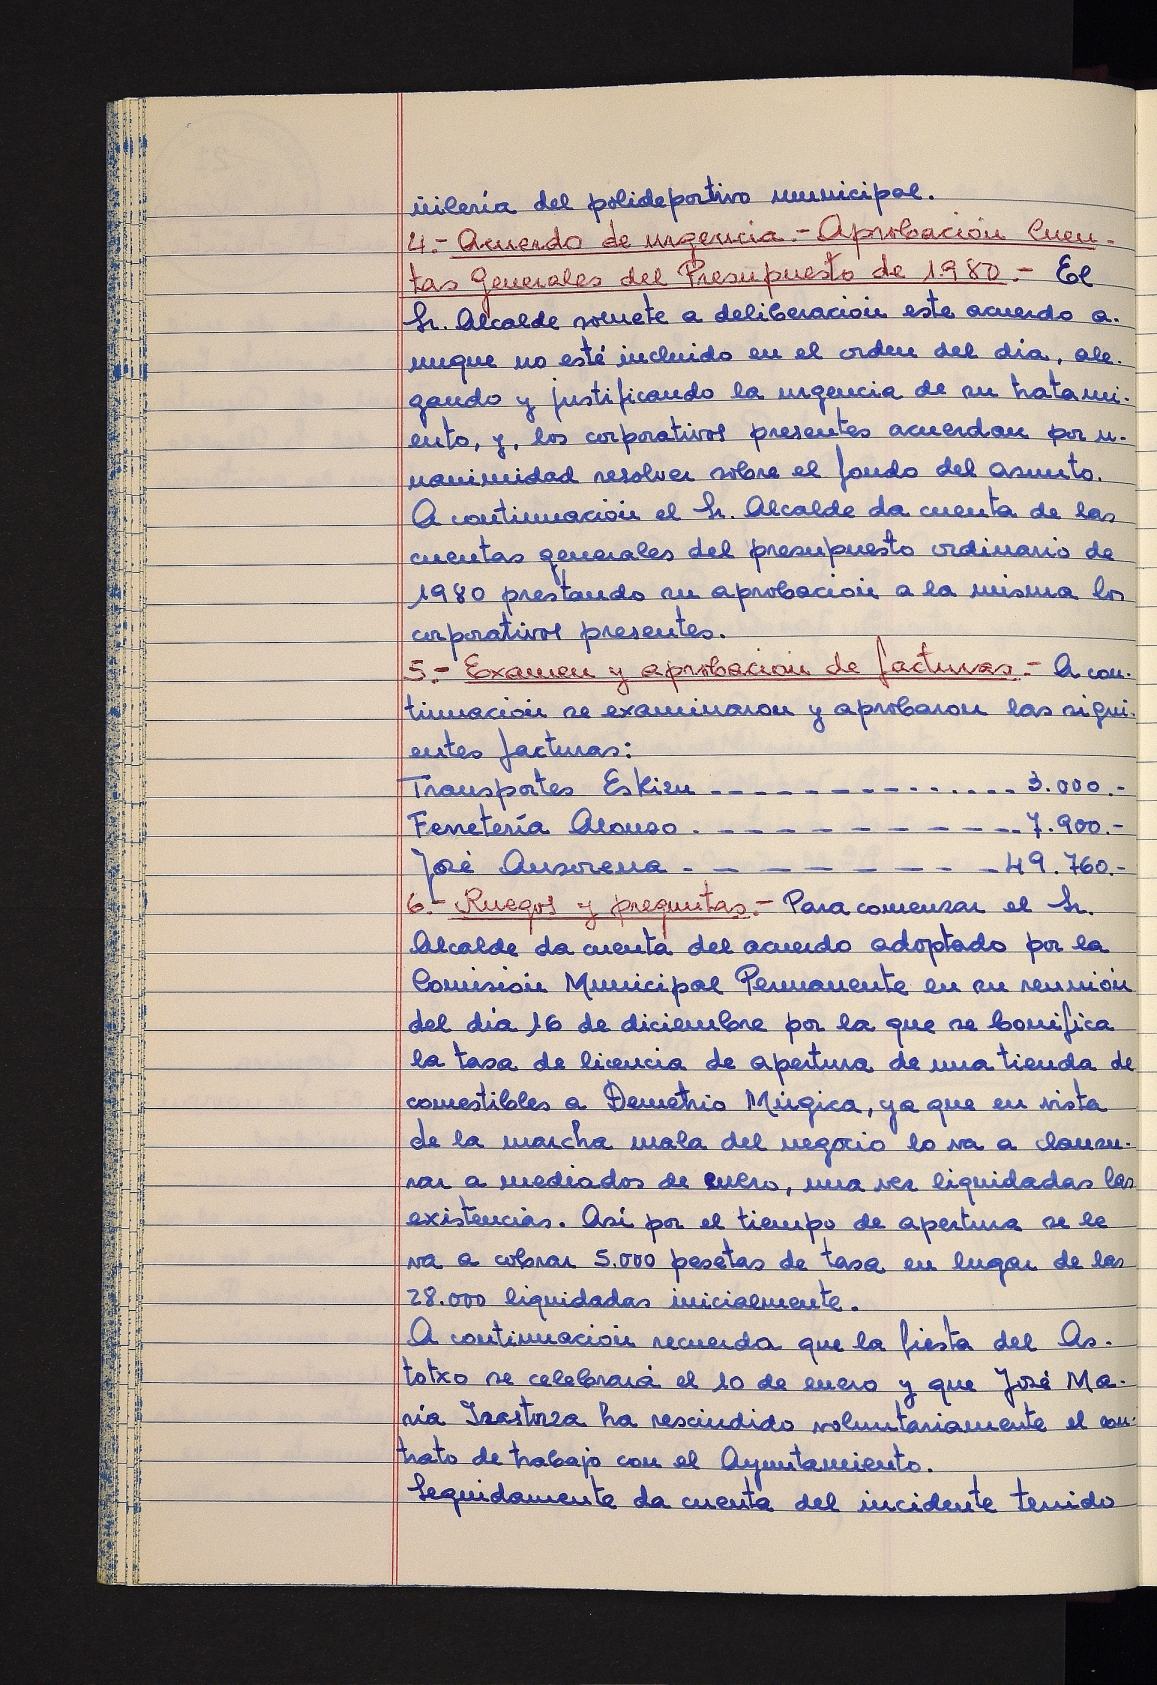 ñilería del polideportivo municipal.
4.- Acuerdo de urgencia.- Aprobación Cuen-
tas Generales del Presupuesto de 1.980.- El
Sr. Alcalde somete a deliberación este acuerdo a-
unque no esté incluido en el orden del día, ale-
gando y justificando la urgencia de su tratami-
ento, y, los corporativos presentes acuerdan por u-
nanimidad resolver sobre el fondo del asunto.
A continuación el Sr. Alcalde da cuenta de las
cuentas generales del presupuesto ordinario de
1980 prestando su aprobación a la misma los
corporativos presentes.
5.- Examen y aprobación de facturas.- A con-
tinuación se examinaron y aprobaron las sigui-
entes facturas:
Transportes Eskizu ------------- 3.000.-
Ferretería Alonso ------------- 7.900.-
José Ansorena ------------- 49.760.-
6.- Ruegos y preguntas.- Para comenzar el Sr.
Alcalde da cuenta del acuerdo adoptado por la
Comisión Municipal Permanente en su reunión
del día 16 de diciembre por la que se bonifica
la tasa de licencia de apertura de una tienda de
comestibles a Demetrio Múgica, ya que en vista
de la marcha mala del negocio lo va a clausu-
rar a mediados de enero, una vez liquidadas las
existencias. Así por el tiempo de apertura se le
va a cobrar 5.000 pesetas de tasa en lugar de las
28.000 liquidadas inicialmente.
A continuación recuerda que la fiesta del As-
totxo se celebrará el 10 de enero y que José Ma-
ría Izastorza ha rescindido voluntariamente el con-
trato de trabajo con el Ayuntamiento.
Seguidamente da cuenta del incidente tenido